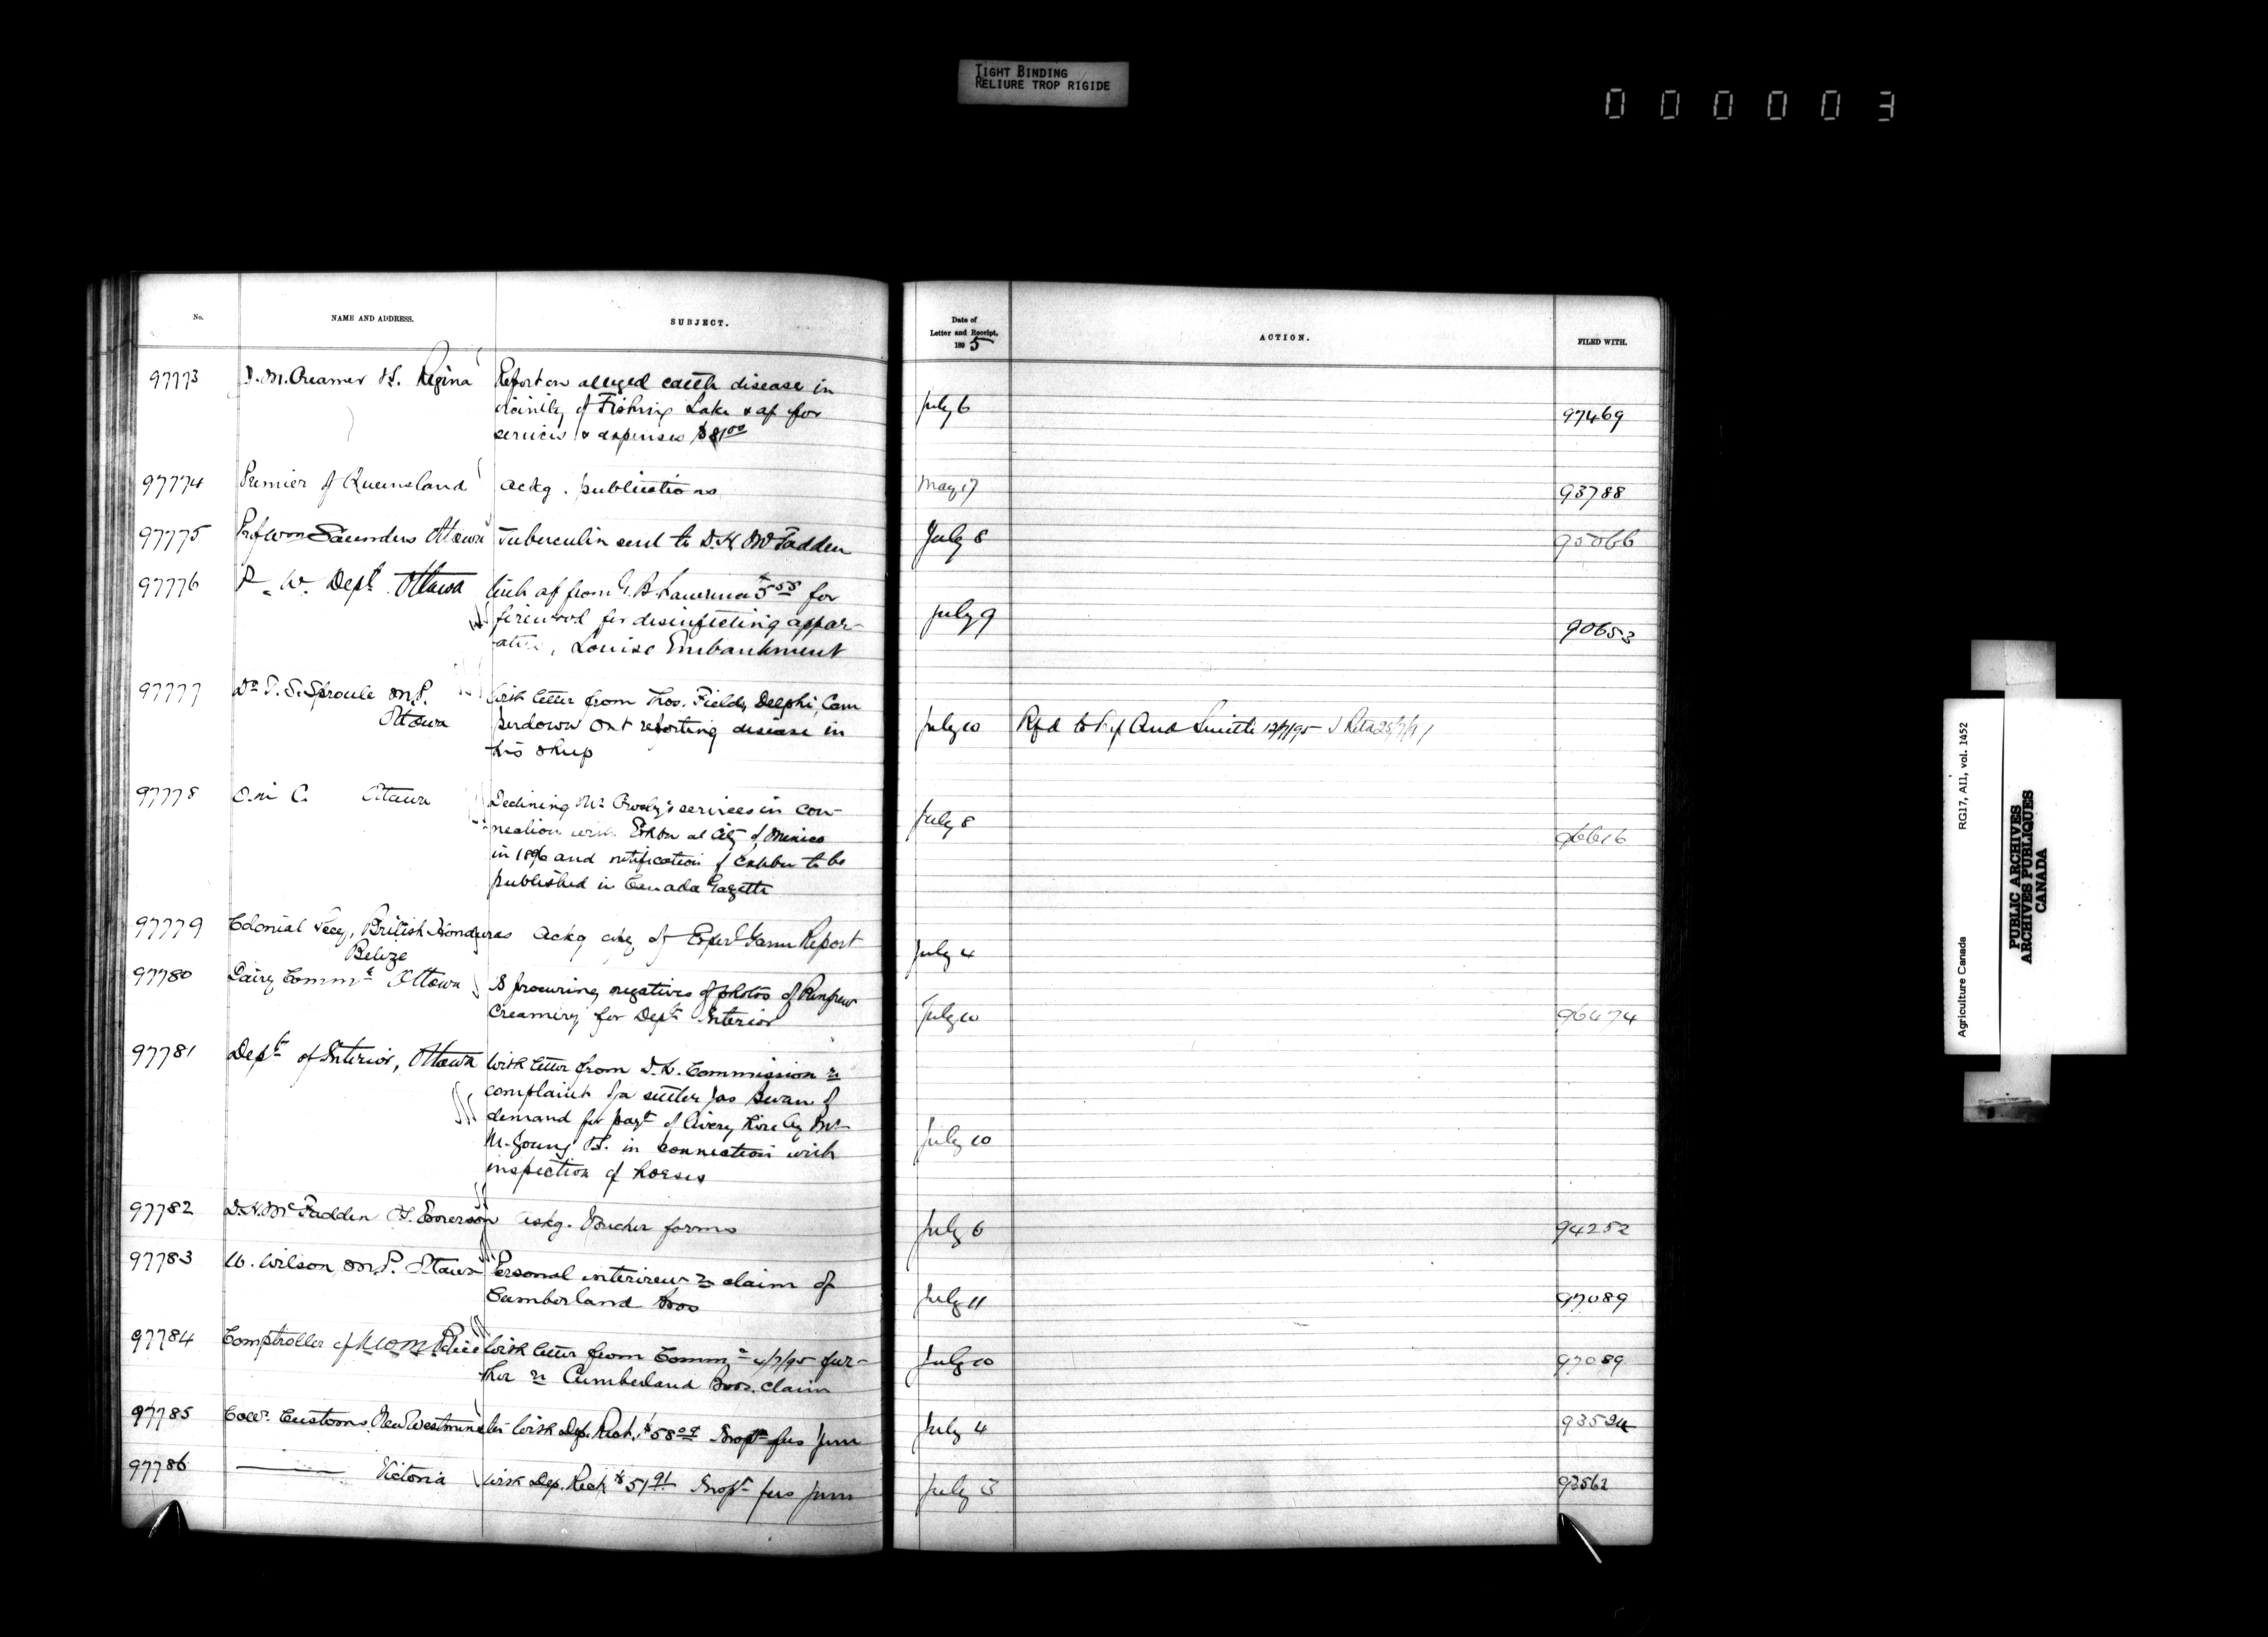 TIGHT BINDING
RELIURE TROP RIGIDE
000003
No. NAME AND ADDRESS. SUBJECT. Date of Letter and Receipt, 1895 ACTION. FILED WITH.
97773 D. M. Creamer V.S. Regina Report on alleged cattle disease in
vicinity of Fishing Lake & a/c for July 6 97469
services & expenses $81.00
97774 Premier of Queensland ackg. publications May 17 93788
97775 Prof Wm Saunders Ottawa Tuberculin sent to D. H. McFadden July 8 95066
97776 P. W. Dept. Ottawa With a/c from G. B. for
firewood for disinfecting appar- July 9 90653
atus, Louise Embankment
97777 Dr. T. S. Sproule M.P. With letter from Thos. Field, Delphi, Cam
Ottawa perdown Ont reporting disease in July 10 Rfd to Prof And Smith 12/7/95
his sheep
97778 Ottawa Declining Mr. services in con-
nection with Exhbn at City of Mexico July 8 96616
in 1896 and notification of Exhbn to be
published in Canada Gazette
97779 Colonial Secy, British Honduras ackg of Experl Farm Report July 4
Belize
97780 Dairy Commr Ottawa procuring negatives of photos of Renfrew
Creamery for Dept. Interior July 10 96474
97781 Dept. of Interior, Ottawa With letter from D. L. Commission re
complaint of a settler Jas Swan of
demand for payt of livery hire by Mr
M. Young V.S. in connection with July 10
inspection of horses
97782 D. H. McFadden V.S. Emerson ackg. Voucher forms July 6 94252
97783 U. Wilson M.P. Ottawa Personal interview re claim of
Cumberland Bros July 11 97089
97784 Comptroller of N.W.M. Police With letter from Commr 4/7/95 fur-
ther re Cumberland Bros. claim July 10 97089
97785 Collr. Customs, New Westminster With Dep. Rect. $58.00 Inspn fees June July 4
97786 — Victoria With Dep. Rect $51.91 Inspn fees June July 3 93562
Agriculture Canada RG17, AII, vol. 1452
PUBLIC ARCHIVES
ARCHIVES PUBLIQUES
CANADA